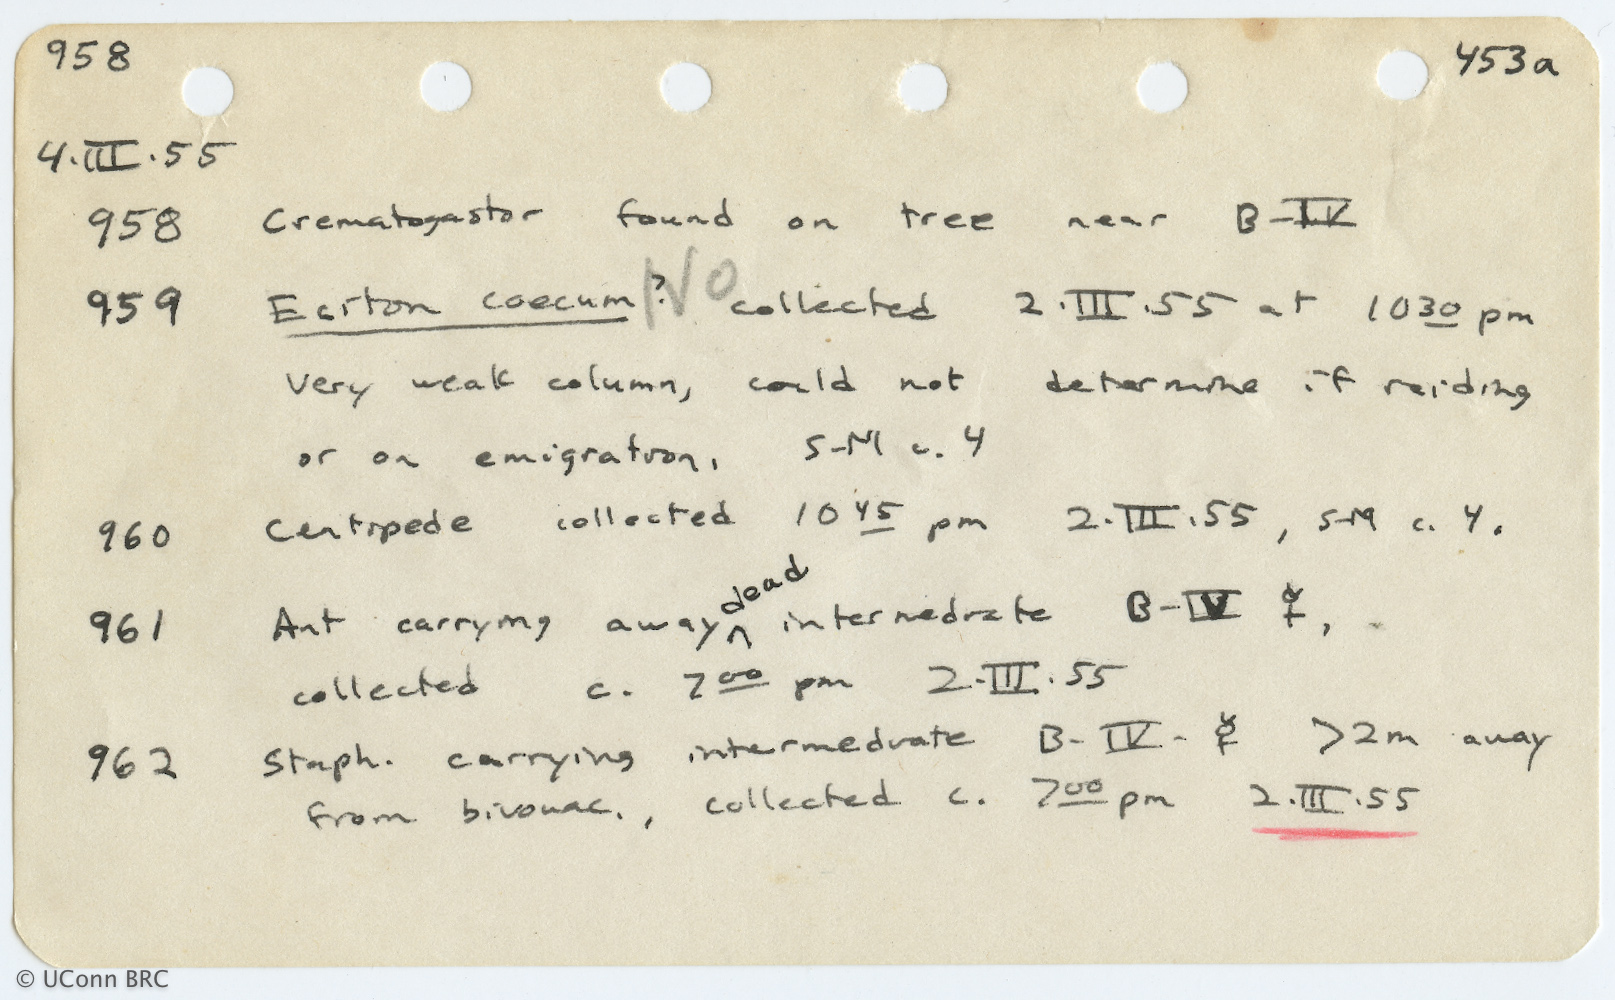 958 453a
4.III.55
958 Crematogastor found on tree near B-IV
959 Eciton coecum? NO collected 2.III.55 at 1030 pm
very weak column, could not determine if raiding
or on emigration, S-M c. 4
960 Centipede collected 1045 pm 2.III.55, S-M c. 4.
961 Ant carrying away dead intermediate B-IV ☿,
collected c. 700 pm 2.III.55
962 Staph. carrying intermediate B-IV-☿ >2m away
from bivouac., collected c. 700 pm 2.III.55
© UConn BRC